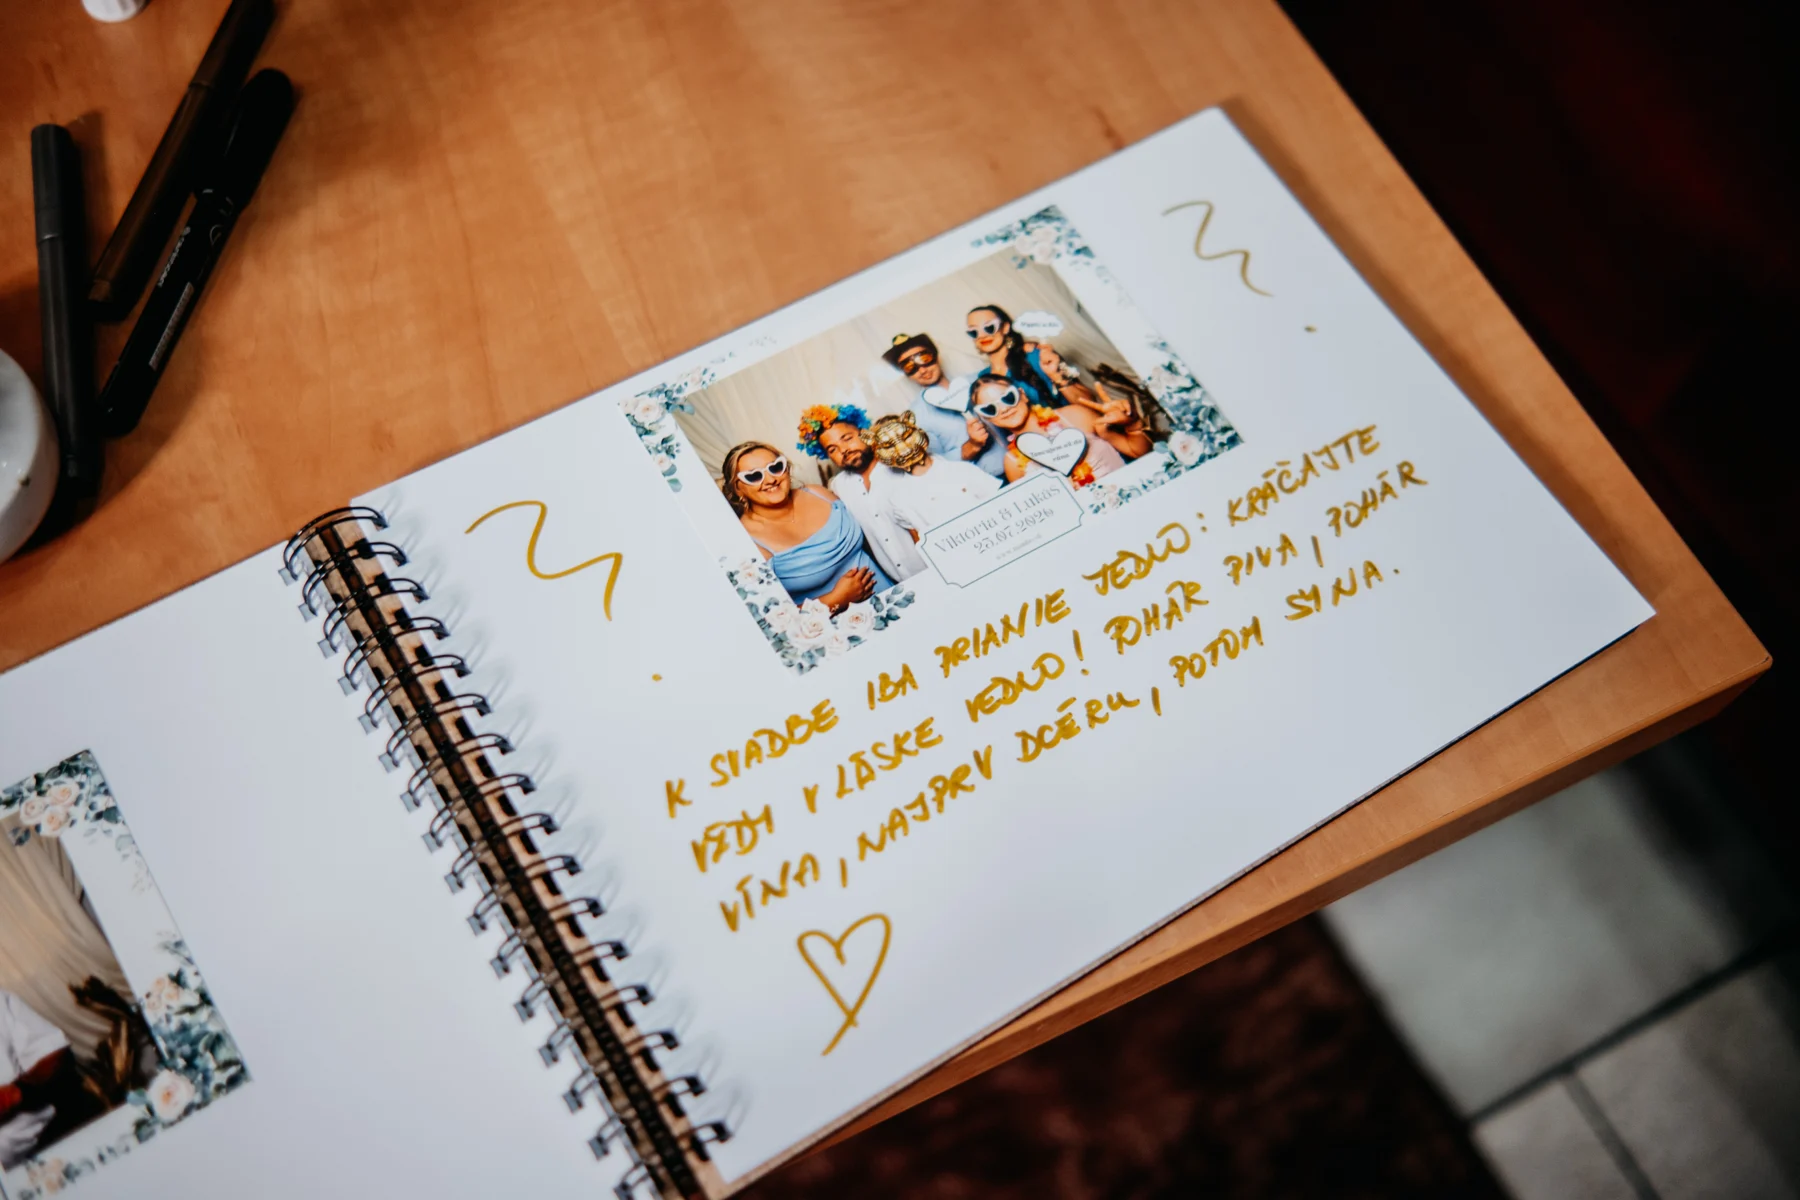 Viktória & Lukáš
25.07.2026
K SVADBE IBA PRIANIE JEDNO: KRÁČAJTE
VŽDY V LÁSKE VEDNO! POHÁR PIVA, POHÁR
VÍNA, NAJPRV DCÉRU, POTOM SYNA.